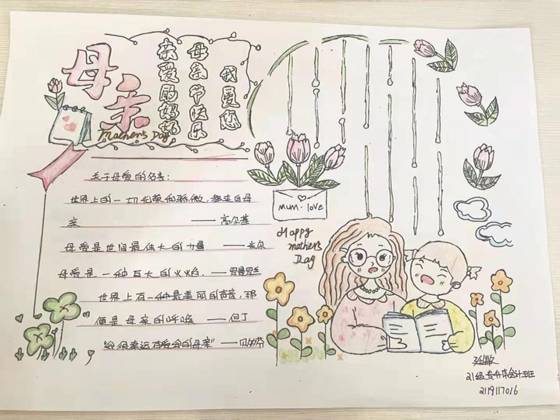 母亲
Mother's Day
亲爱的妈妈
母亲节快乐
我爱您
mum.love
Happy
mother's
Day
关于母爱的名言:
世界上的一切光荣和骄傲,都来自母
亲 ——高尔基
母爱是世间最伟大的力量 ——米尔
母爱是一种巨大的火焰 ——罗曼罗兰
世界上有一种最美丽的声音,那
便是母亲的呼唤 ——但丁
——贝多芬
21级会计
2119117016